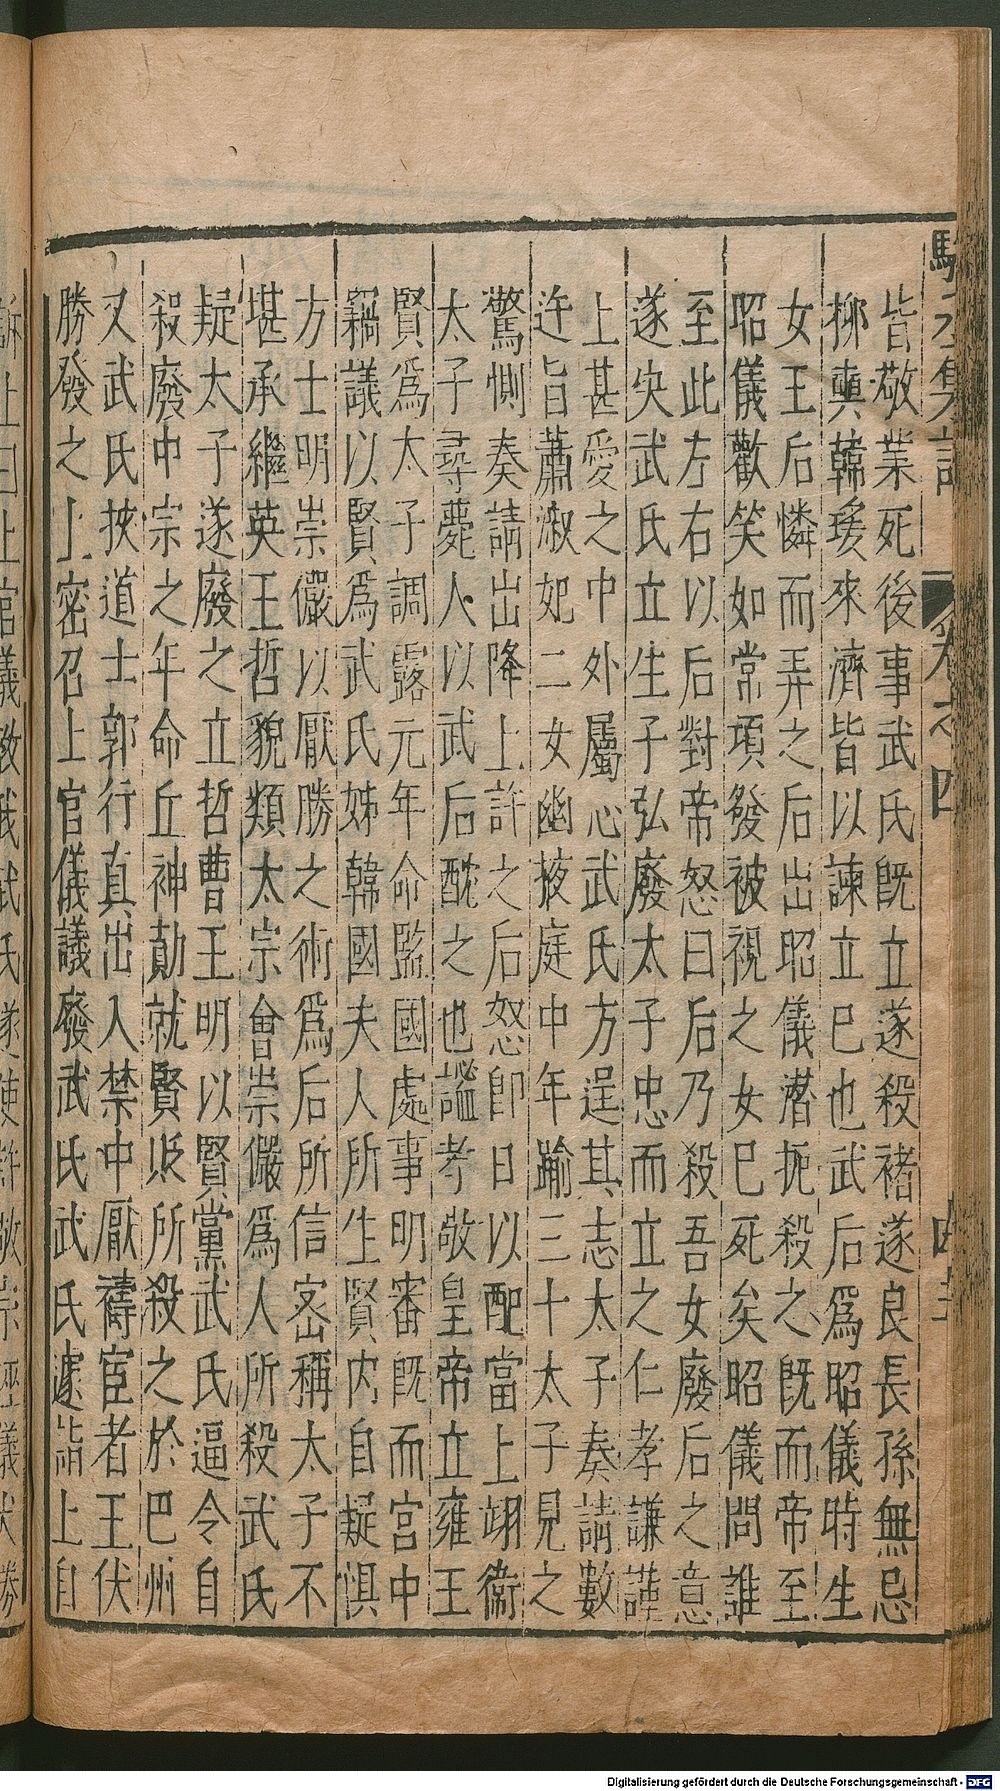 皆敬業死後事武氏既立遂殺褚遂良長孫無忌
柳奭韓瑗來濟皆以諫立巳也武后爲昭儀時生
女王后憐而弄之后出昭儀潛扼殺之既而帝至
昭儀歡笑如常項發被視之女巳死矣昭儀問誰
至此左右以后對帝怒曰后乃殺吾女廢后之意
遂決武氏立生子弘廢太子忠而立之仁孝謙謹
上甚愛之中外屬心武氏方逞其志太子奏請數
迕旨蕭淑妃二女幽掖庭中年踰三十太子見之
驚惻奏請出降上許之后怒卽日以配當上翊衞
太子尋薨人以武后酖之也謚孝敬皇帝立雍王
賢爲太子調露元年命監國處事明審既而宮中
竊議以賢爲武氏姊韓國夫人所生賢内自疑懼
方士明崇儼以厭勝之術爲后所信密稱太子不
堪承繼英王哲貌類太宗會崇儼爲人所殺武氏
疑太子遂廢之立哲曹王明以賢黨武氏逼令自
殺廢中宗之年命丘神勣就賢貶所殺之於巴州
又武氏挾道士郭行真出入禁中厭禱宦者王伏
勝發之上密召上官儀議廢武氏武氏遽詣上自
卷之四
Digitalisierung gefördert durch die Deutsche Forschungsgemeinschaft - DFG